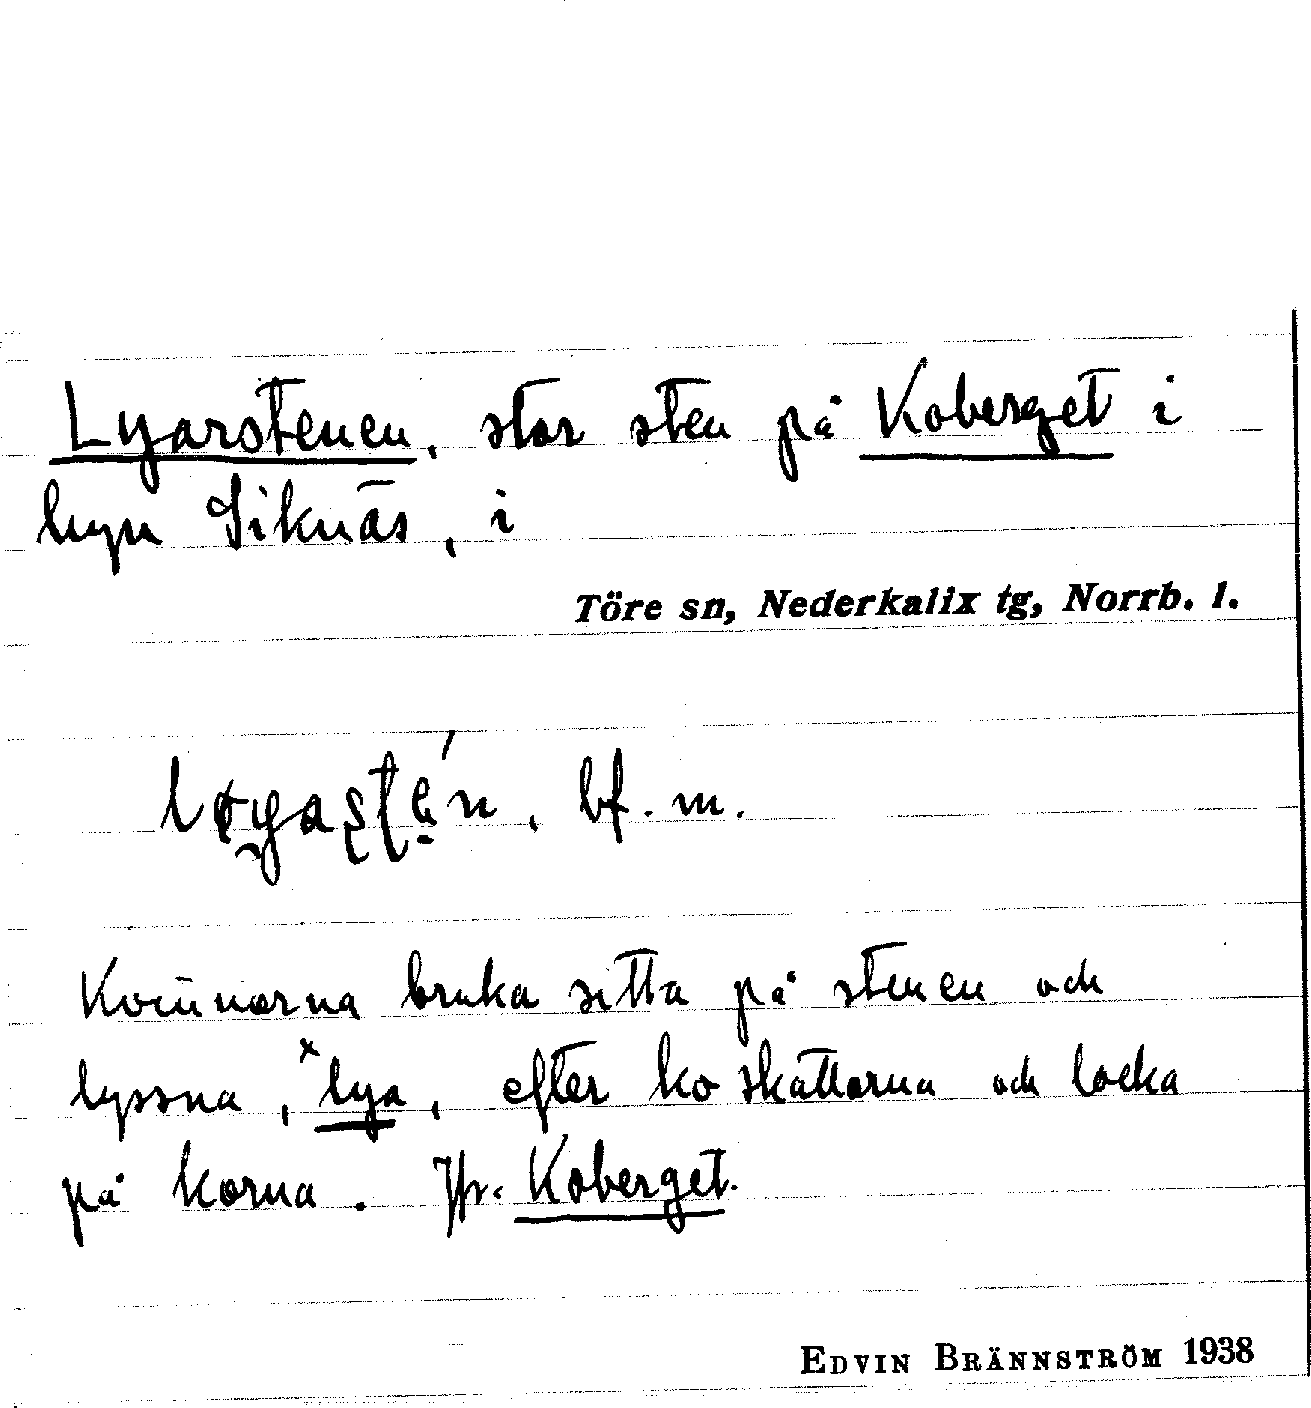 Lyarstenen, stor sten på Koberget i
byn Siknäs, i
Töre sn, Nederkalix tg, Norrb. l.
bf. m.
Kvinnorna bruka sitta på stenen och
lyssna, ˣlya, efter koskällorna och locka
på korna. Jfr. Koberget.
EDVIN BRÄNNSTRÖM 1938